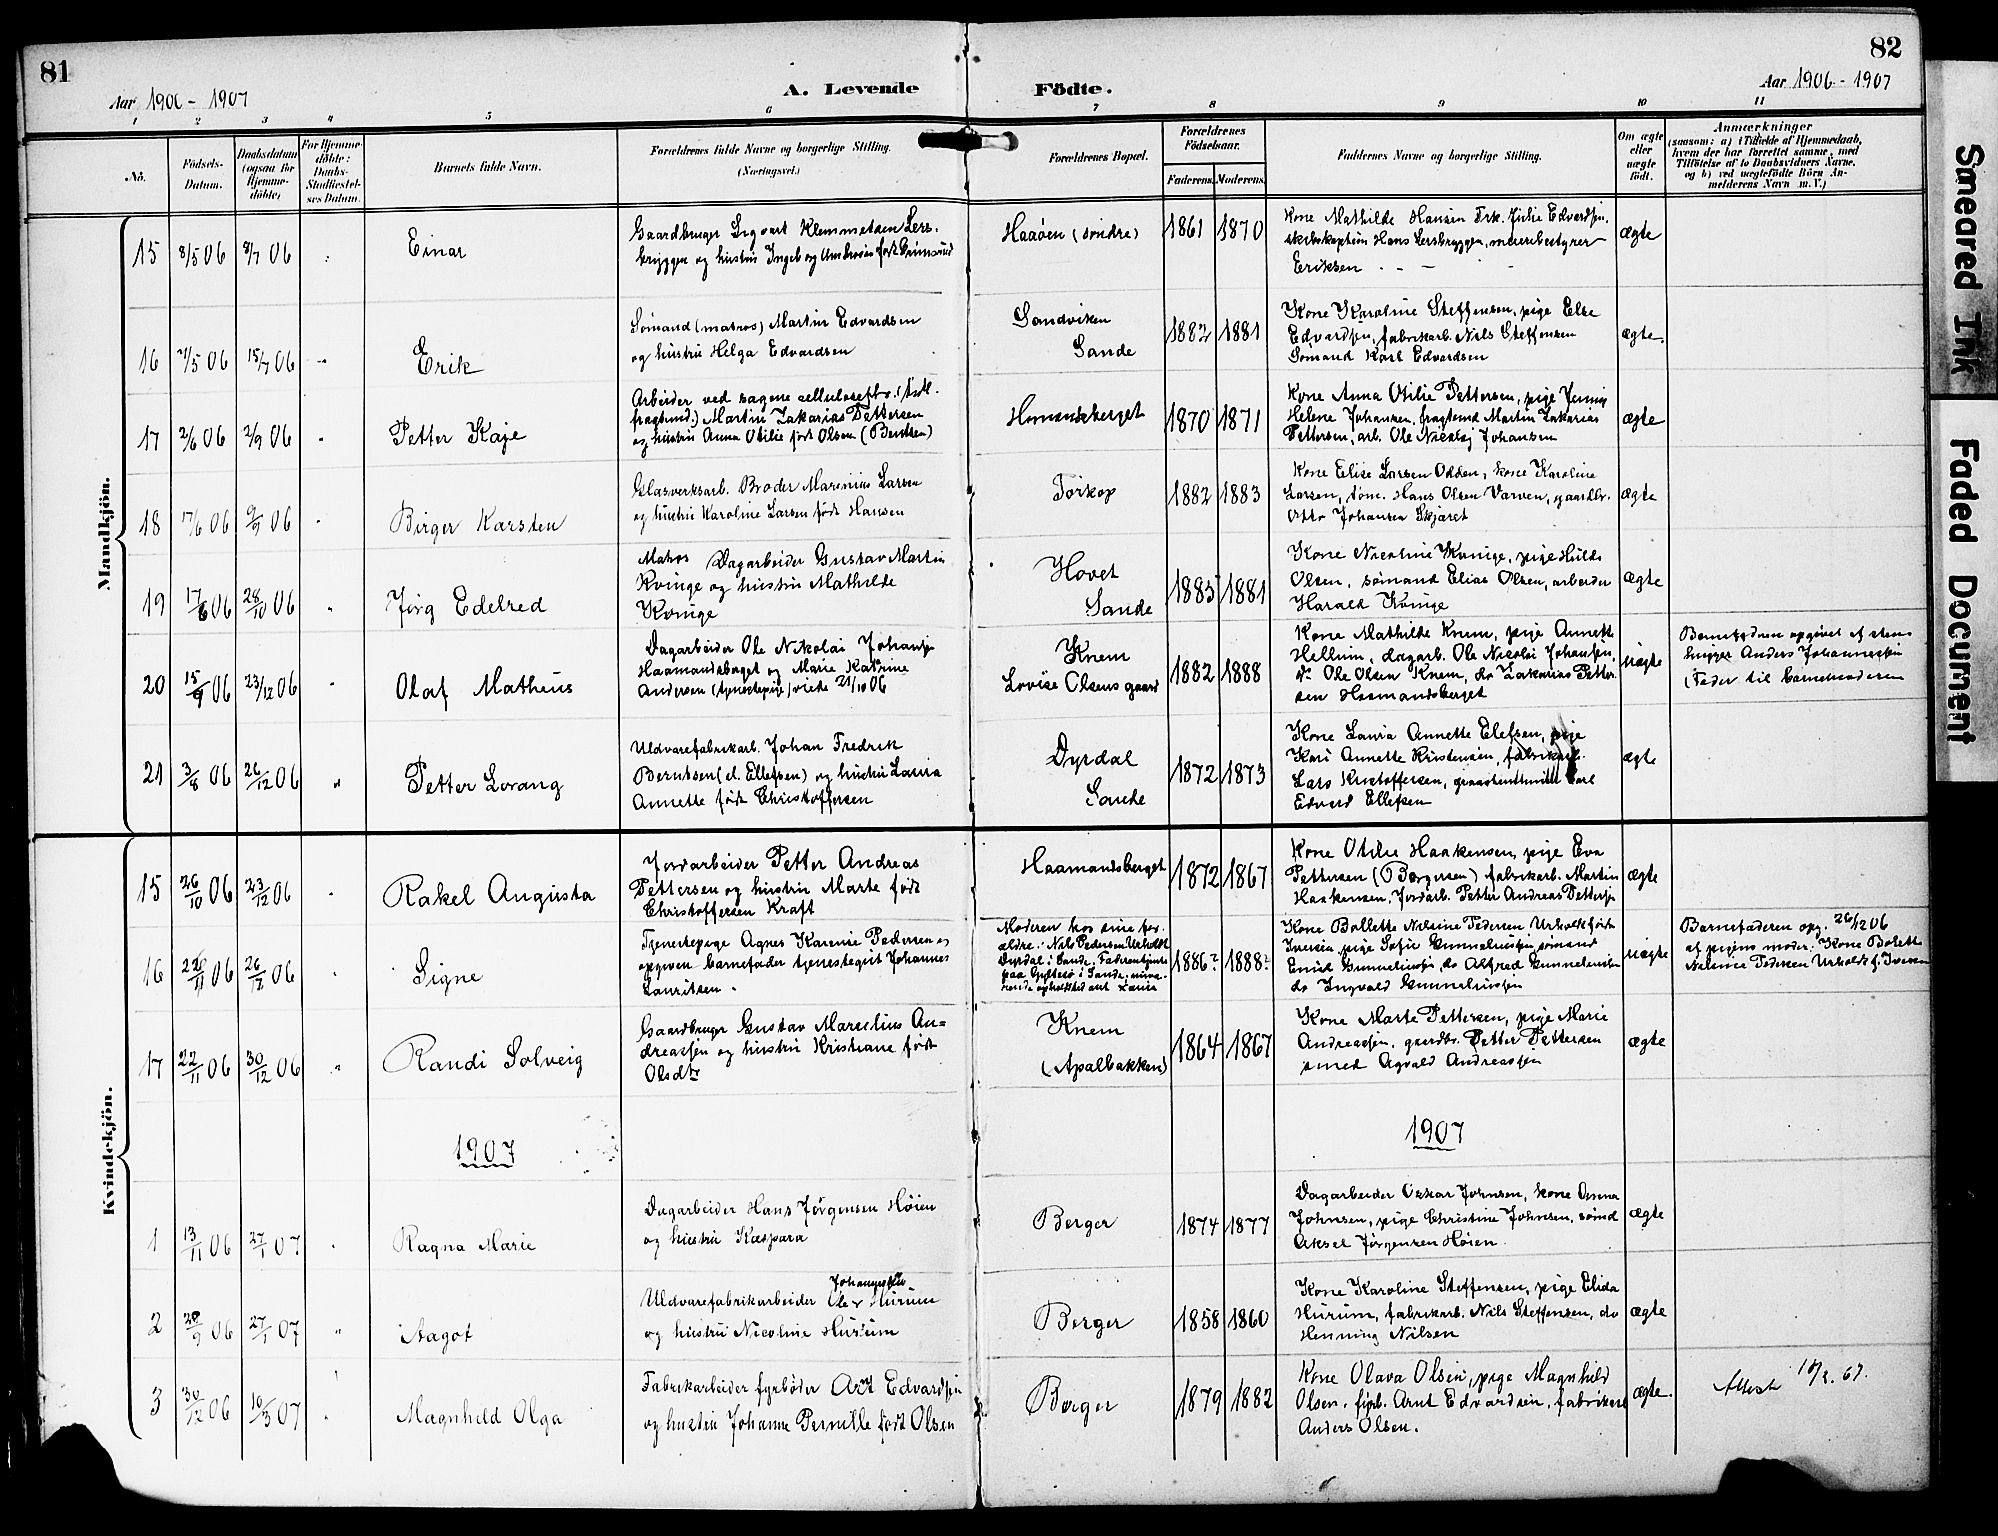 81
Aar 1906 - 1907
A. Levende
Födte.
82
Aar 1906 - 1907
1 2 3 4 5 6 7 8 9 10 11
No.
Födsels-
Datum.
Daabsdatum
(ogsaa for
Hjemme-
döbte)
For Hjemme-
döbte:
Daabs-
Stadfæstel-
ses Datum.
Barnets fulde Navn.
Forældrenes fulde Navne og borgerlige Stilling.
(Næringsvei.)
Forældrenes Bopæl.
Forældrenes
Födselsaar.
Faderens. Moderens.
Faddernes Navne og borgerlige Stilling.
Om ægte
eller
uægte
födt.
Anmærkninger
(saasom: a) i Tilfælde af Hjemmedaab,
hvem der har forrettet samme, med
Tilföielse af to Daabsvidners Navne,
og b) ved uægtefödte Börn An-
melderens Navn m. V.)
Mandkjön.
15 8/5 06 8/7 06 Einar
Gaardbruger Sigvart Klemmetsen Lers-
bryggen og hustru Ingeborg født Grimsrud
Haaøen (søndre) 1861 1870
Kone Mathilde Hansen Frk. Julie Edvardsen
skibskaptein Hans Lersbryggen, meieribestyrer
Eriksen
ægte
16 /5 06 15/7 06 Erik
Sømand (matros) Martin Edvardsen
og hustru Helga Edvardsen
Sandviken
Sande
1882 1881
Kone Karoline Steffensen, pige Else
Edvardsen, fabrikarb. Nils Steffensen
Sømand Karl Edvardsen
ægte
17 2/6 06 2/9 06 Petter Kaje
Arbeider ved sagene cellulosefbr. (
fragtmd.) Martin Zakarias Pettersen
og hustru Anna Otilie født Olsen (Berntsen)
Homandsberget 1870 1871
Kone Anna Otilie Pettersen, pige Jenny
Helene Johansen, fragtemd Martin Zakarias
Pettersen, arb. Ole Nicolaj Johansen
ægte
18 17/6 06 9/9 06 Birger Karsten
Glasverksarb. Broder Marinius Larsen
og hustru Karoline Larsen født Hansen
Tørkop 1882 1883
Kone Elise Larsen Odden, kone Karoline
Larsen, tømr. Hans Olsen Varven, gaardbr.
Otto Johansen Skjæret
ægte
19 17/6 06 28/10 06 Jørg Edelred
Matros Dagarbeider Gustav Martin
Kvinge og hustru Mathilde
Kvinge
Hovet
Sande
1885 1881
Kone Nicoline Kvinge, pige Hulda
Olsen, sømand Elias Olsen, arbeider
Harald Kvinge
ægte
20 15/9 06 23/12 06 Olaf Matheus
Dagarbeider Ole Nikolai Johansen
Haamandsberget og Marie Katrine
Andersen (tjenestepige) viede 21/10 06
Knem
Lovise Olsens gaard
1882 1888
Kone Mathilde Knem, pige Annette
Hellum, dagarb. Ole Nicolai Johansen,
do Ole Olsen Knem, do Zakarias Petter-
sen Haamandsberget
uægte
Barnefødsen opgivet af sten-
hugger Anders Johannessen
(Fader til barnemoderen
21 3/8 06 26/12 06 Petter Lorang
Uldvarefabrikarb. Johan Fredrik
Berntsen (el. Ellefsen) og hustru Laura
Annette født Christoffersen
Dyrdal
Sande
1872 1873
Kone Laura Annette Elefsen, pige
Kari Annette Kristensen, fabrikarb.
Lars Kristoffersen, Carl
Edvard Ellefsen
ægte
Kvindekjön.
15 26/10 06 23/12 06 Rakel Augusta
Jordarbeider Petter Andreas
Pettersen og hustru Marte født
Christoffersen Kraft
Haamandsberget 1872 1867
Kone Otilie Haakensen, pige Eva
Pettersen (O Borgersen) fabrikarb. Martin
Haakensen, Jordarb. Petter Andreas Pettersen
ægte
16 /11 06 26/12 06 Signe
Tjenestepige Agnes Karense Pedersen og
opgiven barnefader tjenestegut Johannes
Lauritsen
Moderen hos sine for-
ældre: Nils Pedersen Urholdt
Dyrdal i Sande. Faderen tjente
paa i Sande, nuvæ-
rende opholdsted
1886? 1888?
Kone Bollette Nelsine Pedersen Urholdt født
Iversen pige Sofie Gunneliussen, sømand
Emil Gunneliussen, do Alfred Gunneliussen
do Ingvald Gunneliussen
uægte
Barnefaderen opg. 26/12 06
af pigens moder: Kone Bolett
Nelsine Pedersen Urholdt f. Iversen
17 22/11 06 30/12 06 Randi Solveig
Gaardbruger Gustav Marcelius An-
dreassen og hustru Kristiane født
Olsdtr
Knem
(Apalbakken)
1864 1867
Kone Marte Pettersen, pige Marie
Andreassen, gaardbr. Petter Pettersen
smed Agvald Andreassen
ægte
1907
1907
1 13/11 06 27/1 07 Ragna Marie
Dagarbeider Hans Jørgensen Høien
og hustru Kaspara
Berger 1874 1877
Dagarbeider Oskar Johnsen, kone Amna
Johnsen, pige Christine Johnsen, sømd
Aksel Jørgensen Høien
ægte
2 28/9 06 27/1 07 Aagot
Uldvarefabrikarbeider Ole Hurum
og hustru Nicoline Hurum
Berger 1858 1860
Kone Karoline Steffensen, pige Elida
Hurum, fabrikarb. Nils Steffensen, do
Henning Nilsen
ægte
3 30/12 06 10/3 07 Magnhild Olga
Fabrikarbeider fyrbøder Arnt Edvardsen
og hustru Johanne Pernille født Olsen
Berger 1879 1882
Kone Olava Olsen, pige Magnhild
Olsen, fyrb. Arnt Edvardsen, fabrikarb
Anders Olsen.
ægte
Attest 67.
Smeared Ink
Faded Document